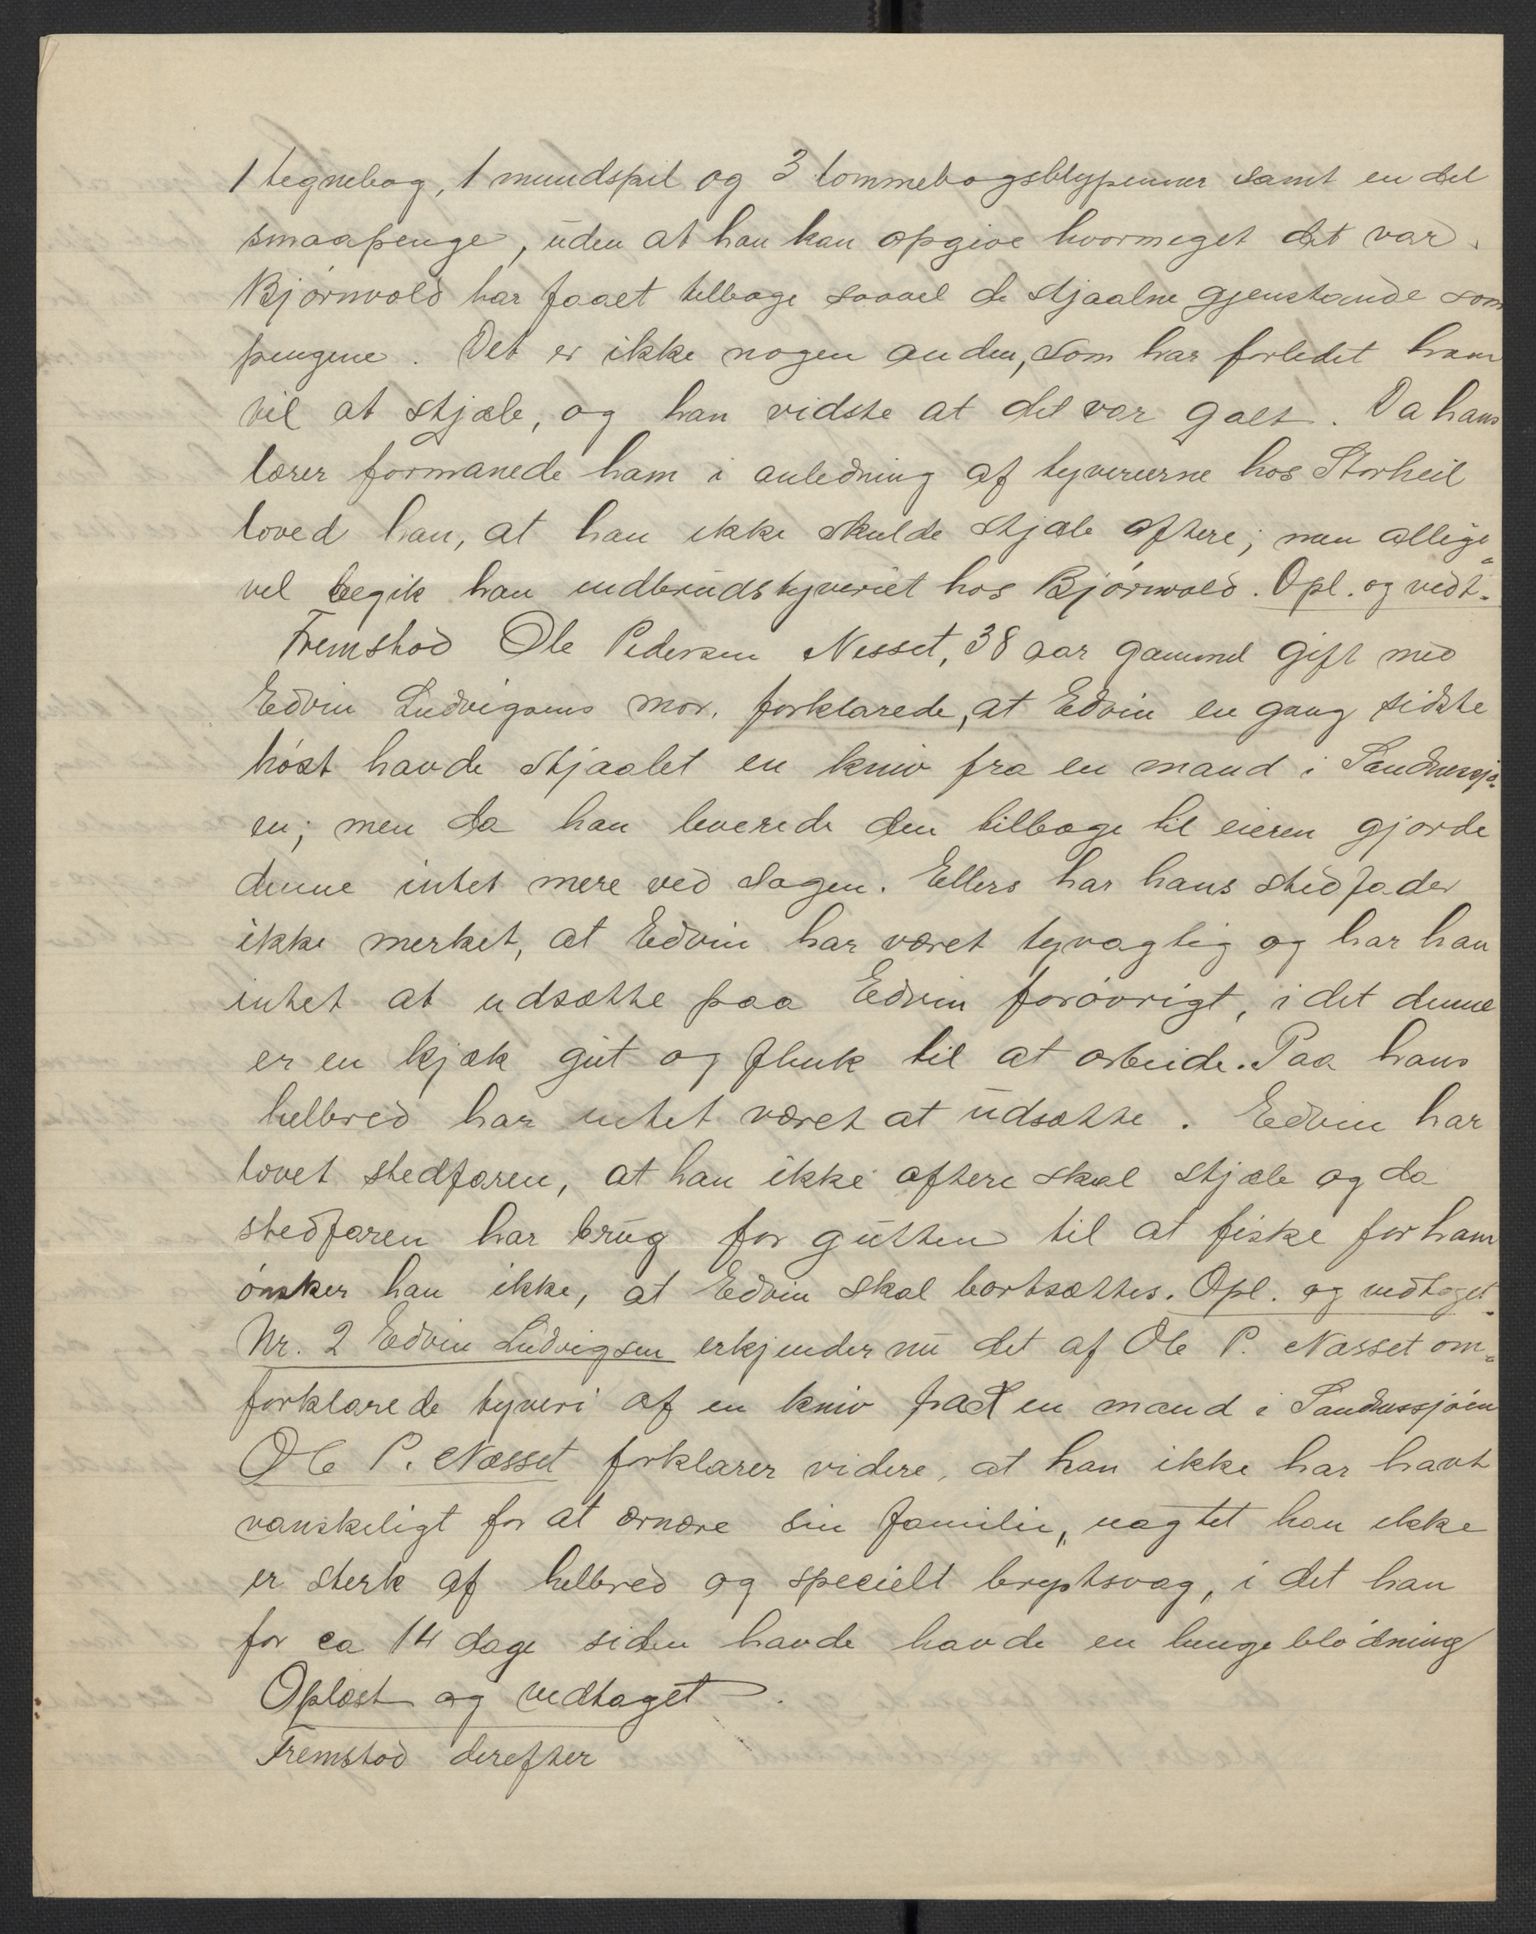 1 tegnebog, 1 mundspil og 3 lommebogsblypenner samt en del
smaapenge, uden at han kan opgive hvormeget det var.
Bjørnvold har faaet tilbage saavel de stjaalne gjenstande som
pengene. Det er ikke nogen anden, som har forledet ham
til at stjæle, og han vidste at det var galt. Da hans
lærer formanede ham i anledning af tyverierne hos Storheil
loved han, at han ikke skulde stjæle oftere; men allige-
vel begik han indbrudstyveriet hos Bjørnvold. Opl. og vedt.
Fremstod Ole Pedersen Nesset, 38 aar gammel gift med
Edvin Ludvigsens mor. forklarede, at Edvin en gang sidste
høst havde stjaalet en kniv fra en mand i Sandnessjø-
en; men da han leverede den tilbage til eieren gjorde
denne intet mere ved sagen. Ellers har hans stedfader
ikke merket, at Edvin har været tyvagtig og har han
intet at udsætte paa Edvin forøvrigt, i det denne
er en kjæk gut og flink til at arbeide. Paa hans
helbred har intet været at udsætte. Edvin har
lovet stedfaren, at han ikke oftere skal stjæle og da
stedfaren har brug for gutten til at fiske for ham
ønsker han ikke, at Edvin skal bortsættes. Opl. og vedtaget.
Nr. 2 Edvin Ludvigsen erkjender nu det af Ole P. Næsset om-
forklarede tyveri af en kniv fra en mand i Sandnessjøen
Ole P. Næsset forklarer videre, at han ikke har havt
vanskeligt for at ernære sin familie, uagtet han ikke
er sterk af helbred og specielt brystsvag, i det han
for ca 14 dage siden havde havde en lungeblødning
Oplæst og vedtaget.
Fremstod derefter